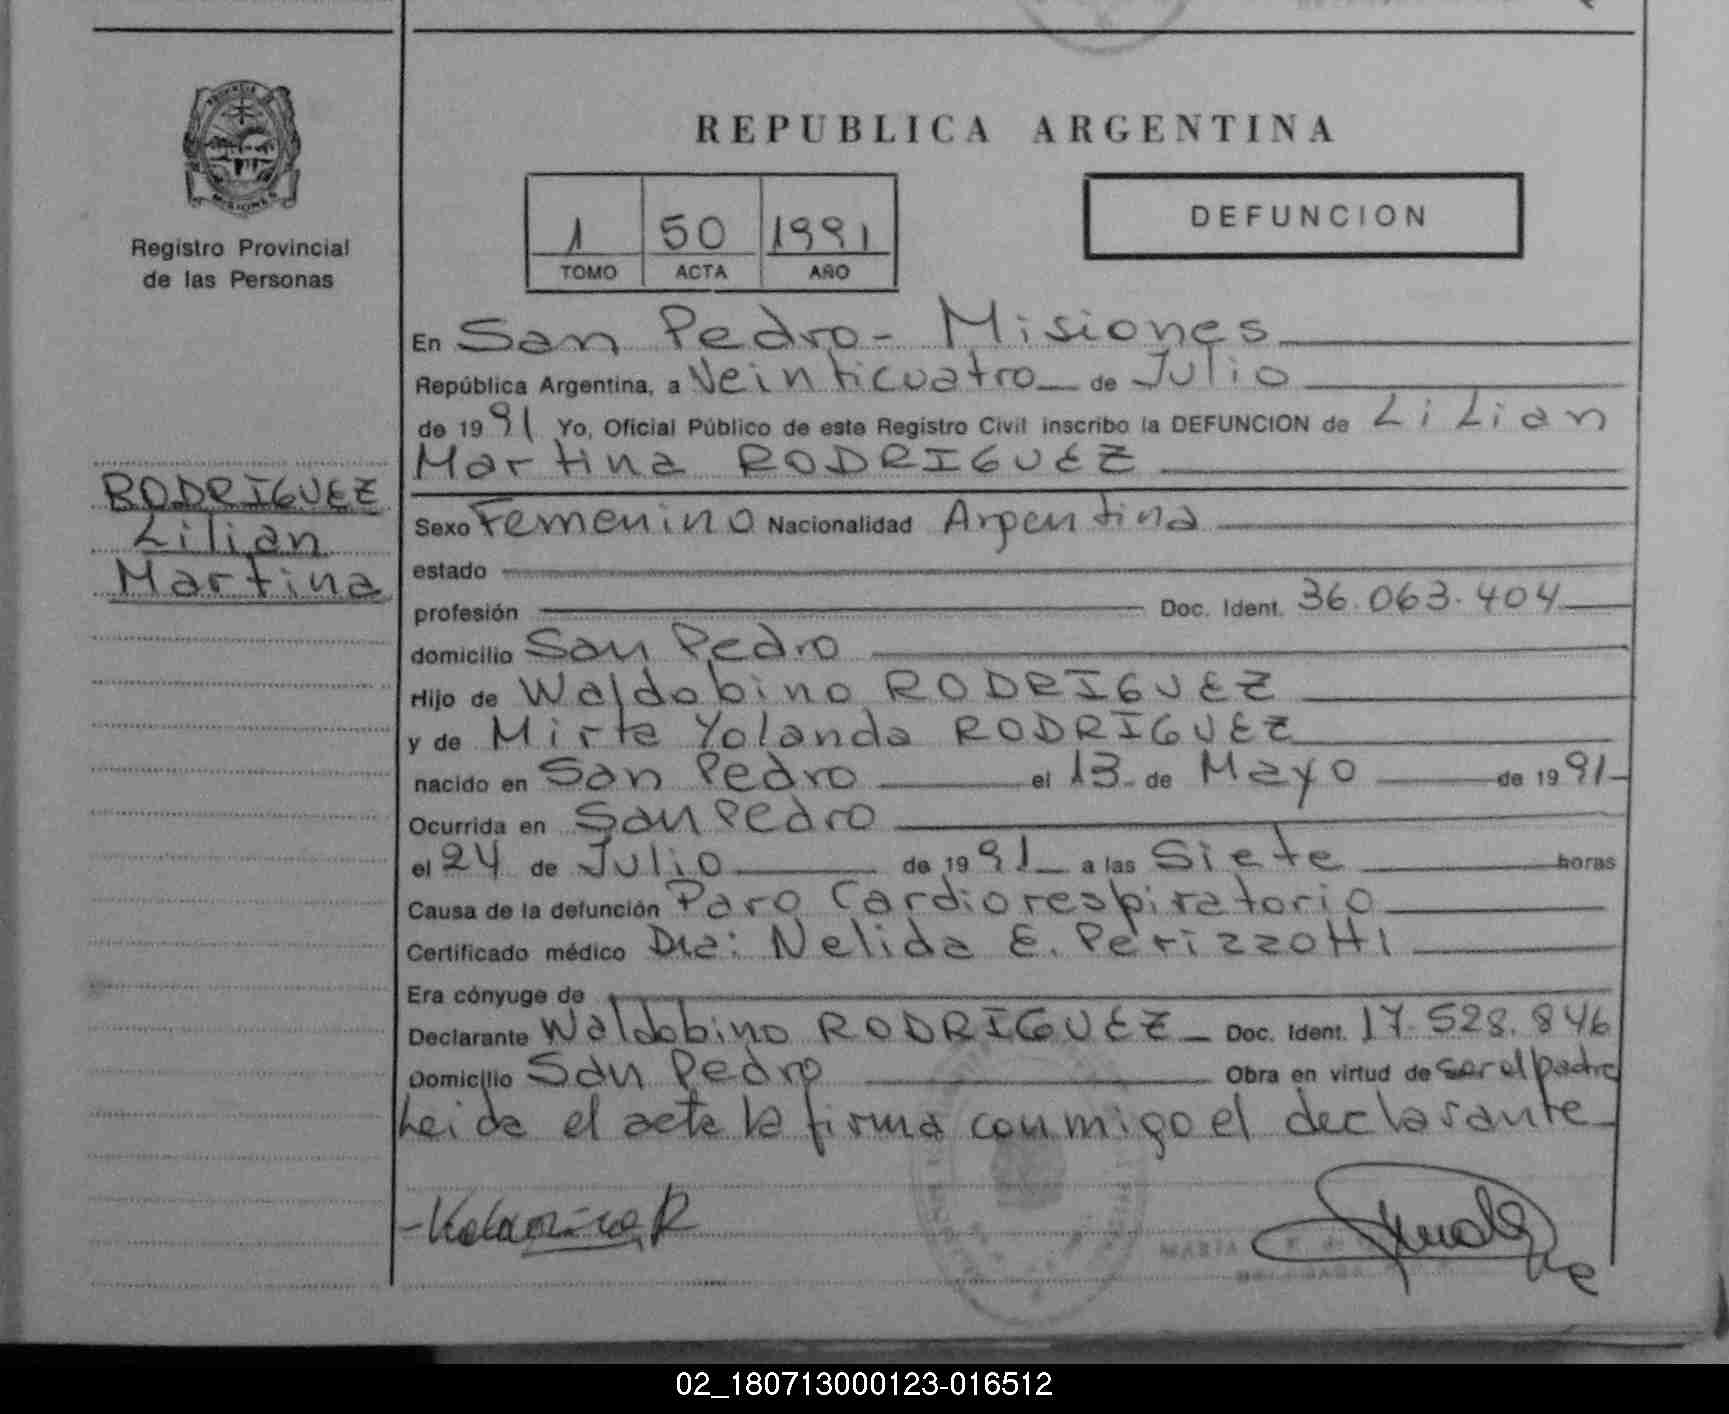 PROVINCIA
MISIONES
Registro Provincial
de las Personas
RODRIGUEZ
Lilian
Martina
REPUBLICA ARGENTINA
1 50 1991
TOMO ACTA AÑO
DEFUNCION
En San Pedro - Misiones
República Argentina, a Veinticuatro de Julio
de 1991 Yo, Oficial Público de este Registro Civil inscribo la DEFUNCION de Lilian
Martina RODRIGUEZ
Sexo Femenino Nacionalidad Argentina
estado
profesión Doc. Ident. 36.063.404
domicilio San Pedro
Hijo de Waldobino RODRIGUEZ
y de Mirta Yolanda RODRIGUEZ
nacido en San Pedro el 13 de Mayo de 1991
Ocurrida en San Pedro
el 24 de Julio de 1991 a las Siete horas
Causa de la defunción Paro Cardiorespiratorio
Certificado médico Dra: Nelida E. Perizzotti
Era cónyuge de
Declarante Waldobino RODRIGUEZ Doc. Ident. 17.528.846
Domicilio San Pedro Obra en virtud de ser el padre
Leida el acta la firma conmigo el declarante
MARIA
02_180713000123-016512